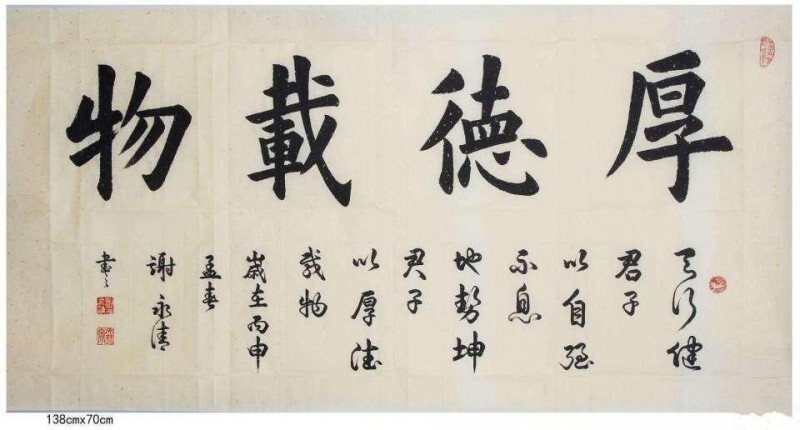 厚德載物
天行健
君子
以自強
不息
地勢坤
君子
以厚德
載物
歲在丙申
孟春
謝永清
書之
138cmx70cm